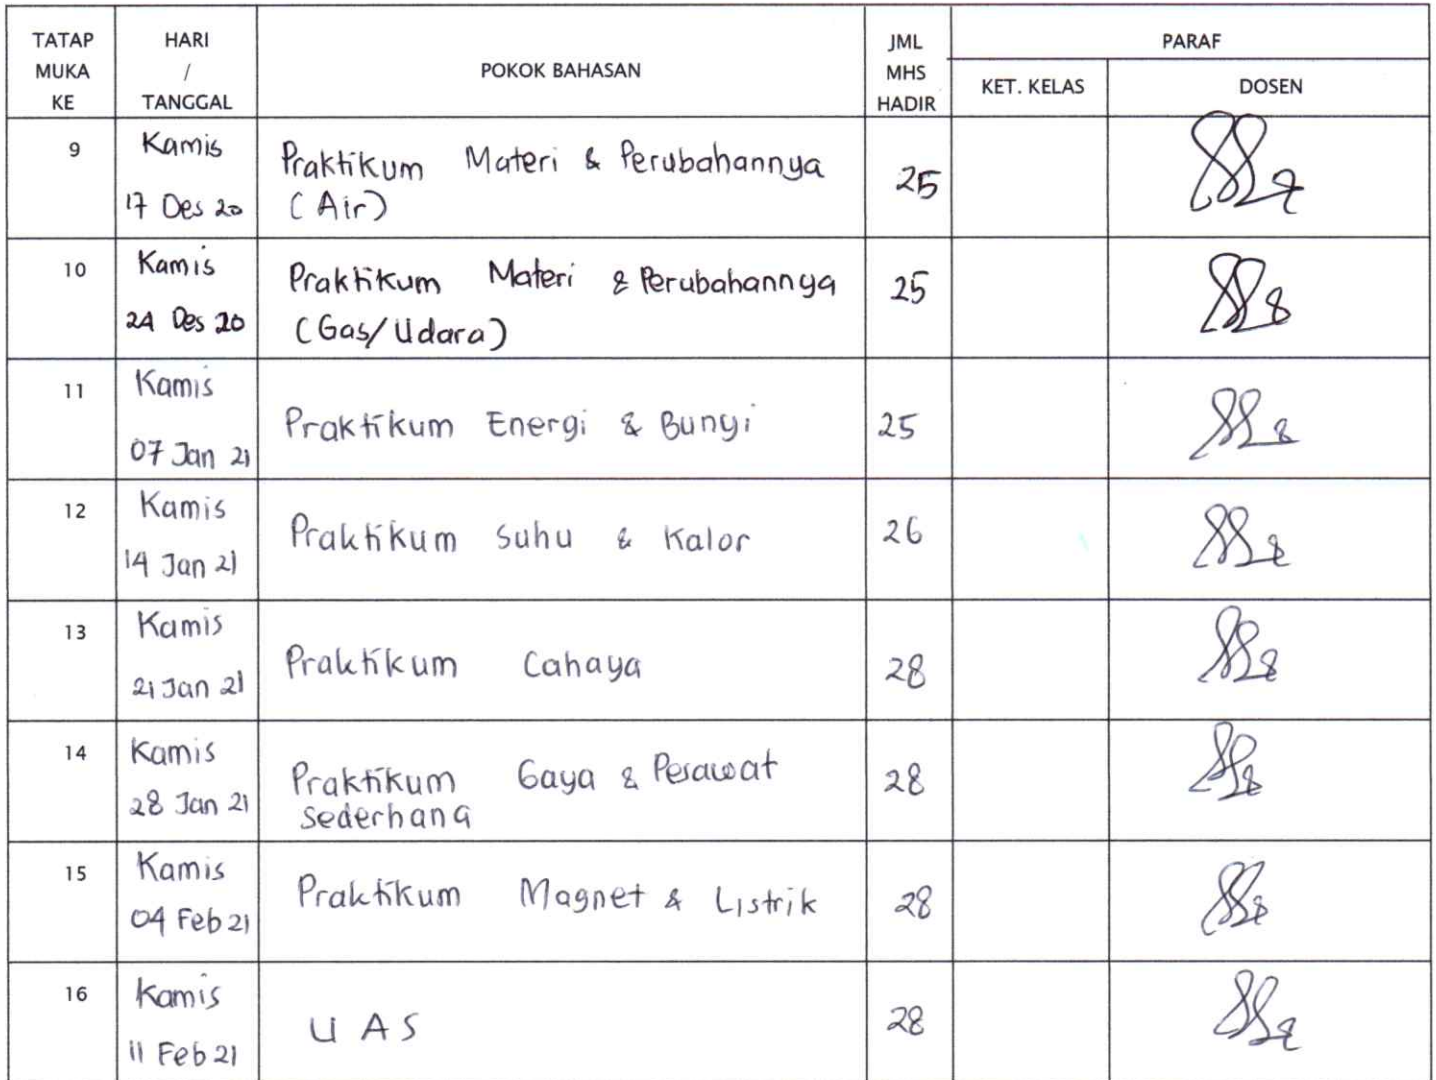 TATAP MUKA KE | HARI / TANGGAL | POKOK BAHASAN | JML MHS HADIR | PARAF
KET. KELAS | DOSEN
9 | Kamis 17 Des 20 | Praktikum Materi & Perubahannya (Air) | 25
10 | Kamis 24 Des 20 | Praktikum Materi & Perubahannya (Gas/Udara) | 25
11 | Kamis 07 Jan 21 | Praktikum Energi & Bunyi | 25
12 | Kamis 14 Jan 21 | Praktikum Suhu & Kalor | 26
13 | Kamis 21 Jan 21 | Praktikum Cahaya | 28
14 | Kamis 28 Jan 21 | Praktikum Gaya & Pesawat Sederhana | 28
15 | Kamis 04 Feb 21 | Praktikum Magnet & Listrik | 28
16 | Kamis 11 Feb 21 | UAS | 28